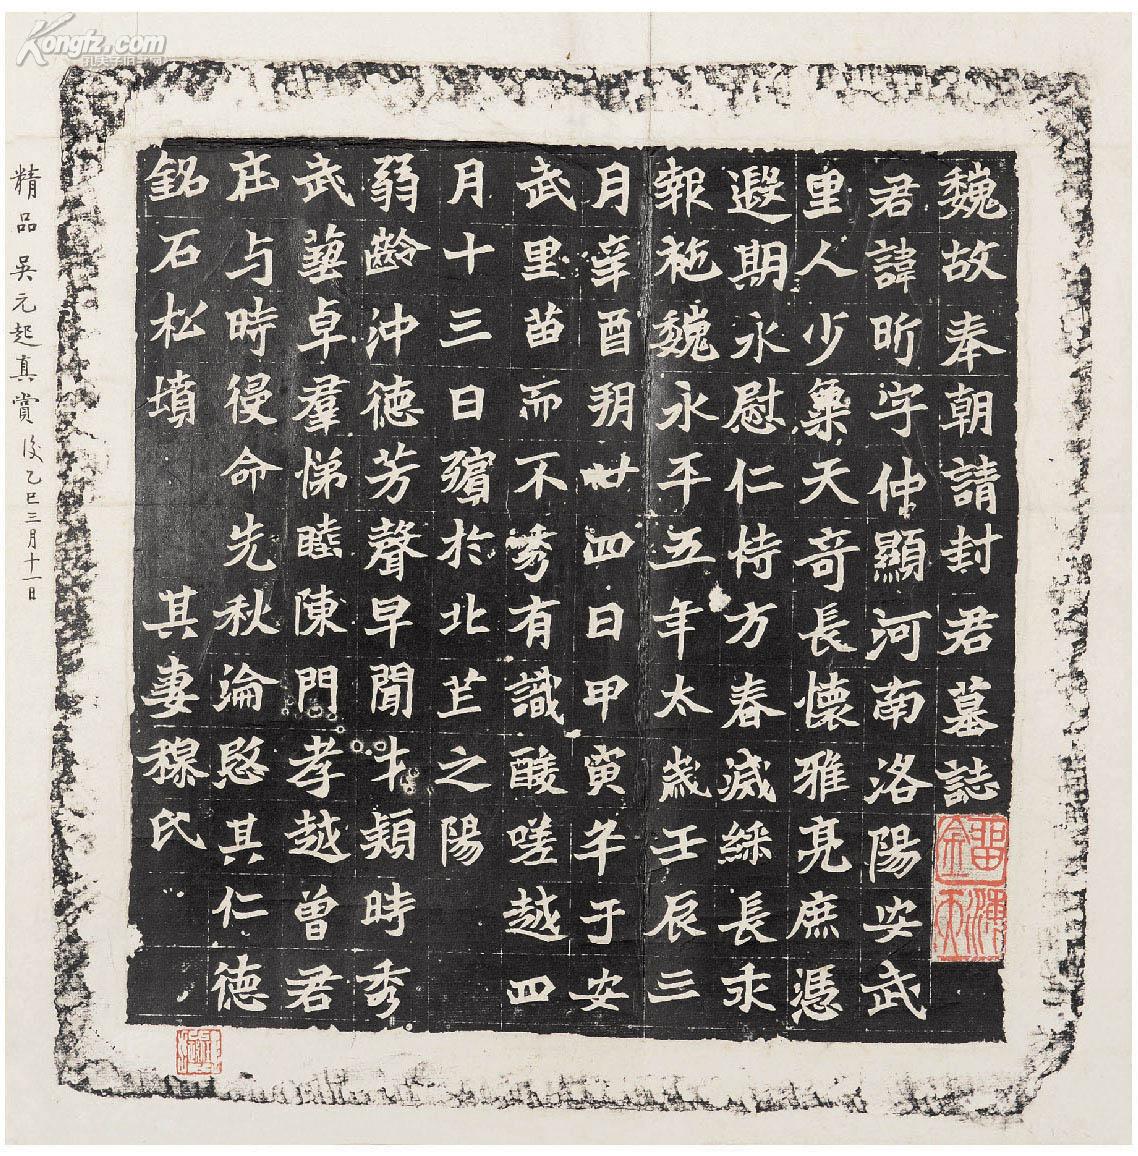 魏故奉朝請封君墓誌
君諱昕字仲顯河南洛陽安武
里人少稟天奇長懷雅亮庶憑
遐期永慰仁恃方春滅綵長禾
報施魏永平五年太歲壬辰三
月辛酉朔廿四日甲寅卒于安
武里苗而不秀有識酸嗟越四
月十三日殯於北芒之陽
弱齡沖德芳聲早聞才穎時秀
武藝卓羣悌睦陳門孝越曾君
庄与時侵命先秋淪愍其仁德
銘石松墳 其妻穆氏
精品 吳元起真賞 後乙巳三月十一日
Kongfz.com
孔夫子旧书网